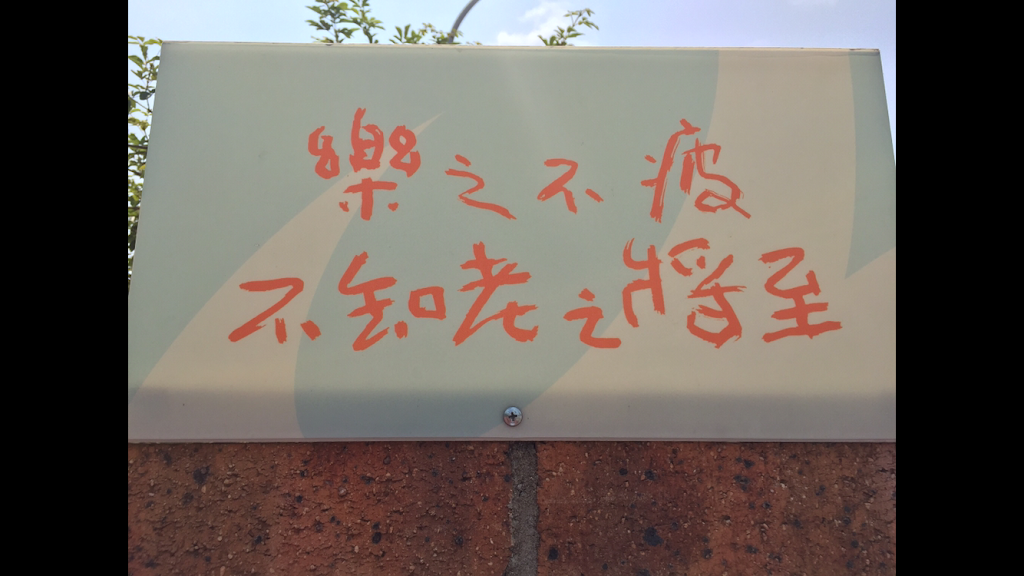 樂之不疲
不知老之將至